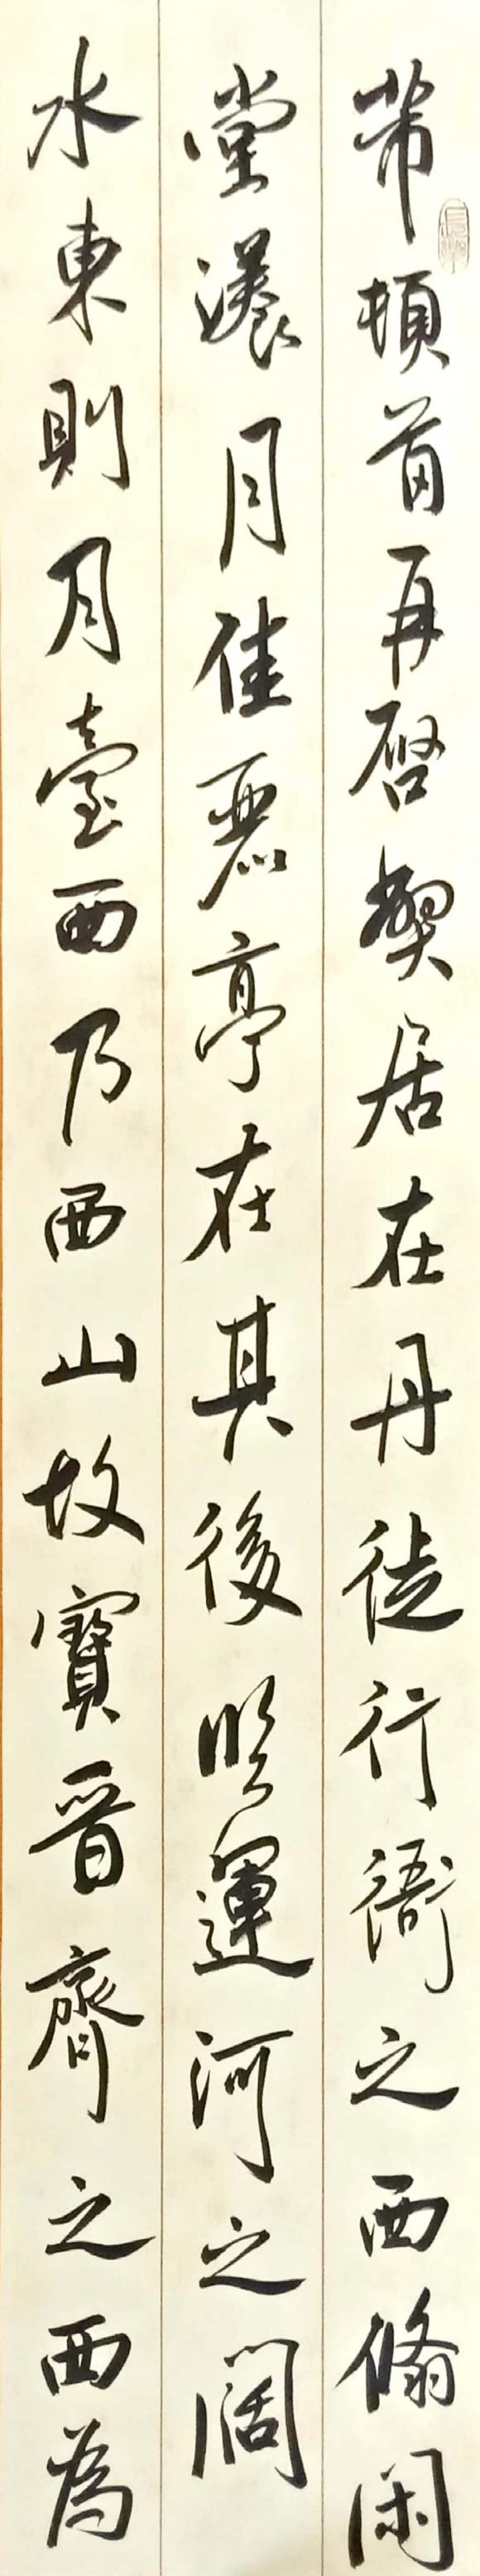 芾頓首再啓弊居在丹徒行衙之西翛閑
堂漾月佳麗亭在其後臨運河之闊
水東則月臺西乃西山故寶晉齋之西為